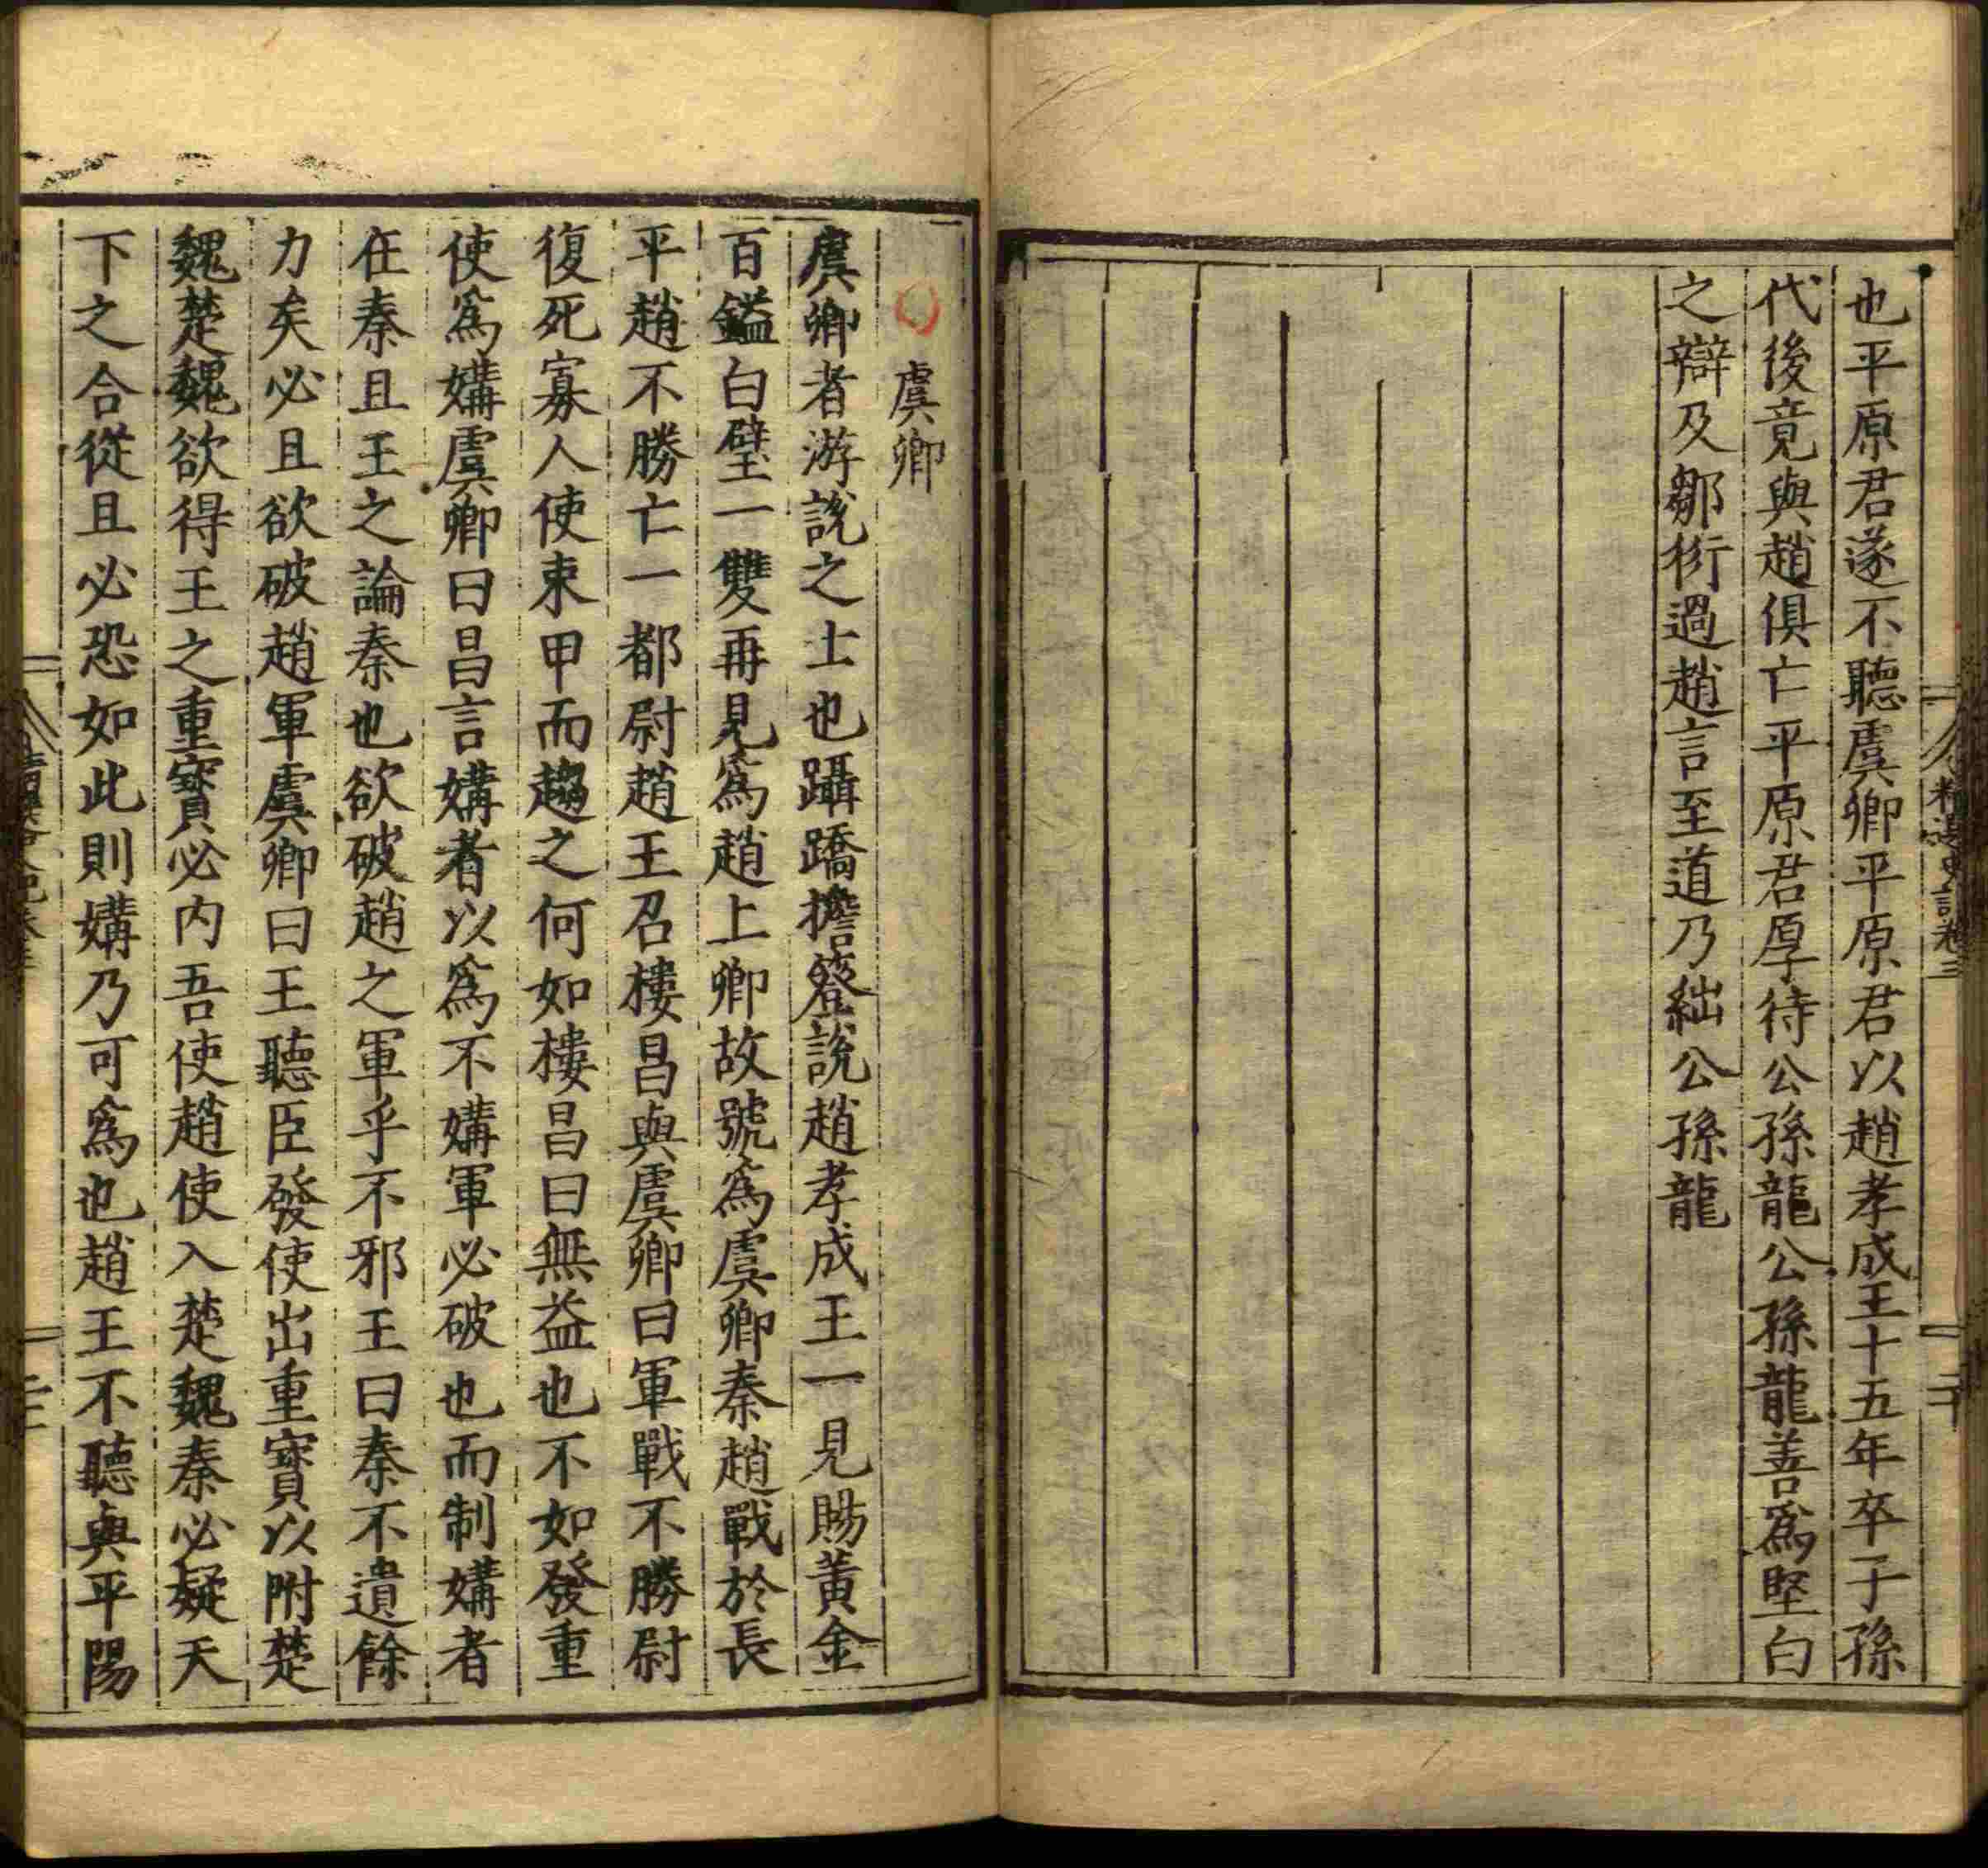 也平原君遂不聽虞卿平原君以趙孝成王十五年卒子孫
代後竟與趙俱亡平原君厚待公孫龍公孫龍善爲堅白
之辯及鄒衍過趙言至道乃絀公孫龍
虞卿
虞卿者游說之士也躡蹻擔簦說趙孝成王一見賜黃金
百鎰白璧一雙再見爲趙上卿故號爲虞卿秦趙戰於長
平趙不勝亡一都尉趙王召樓昌與虞卿曰軍戰不勝尉
復死寡人使束甲而趨之何如樓昌曰無益也不如發重
使爲媾虞卿曰昌言媾者以爲不媾軍必破也而制媾者
在秦且王之論秦也欲破趙之軍乎不邪王曰秦不遺餘
力矣必且欲破趙軍虞卿曰王聽臣發使出重寶以附楚
魏楚魏欲得王之重寶必內吾使趙使入楚魏秦必疑天
下之合從且必恐如此則媾乃可爲也趙王不聽與平陽